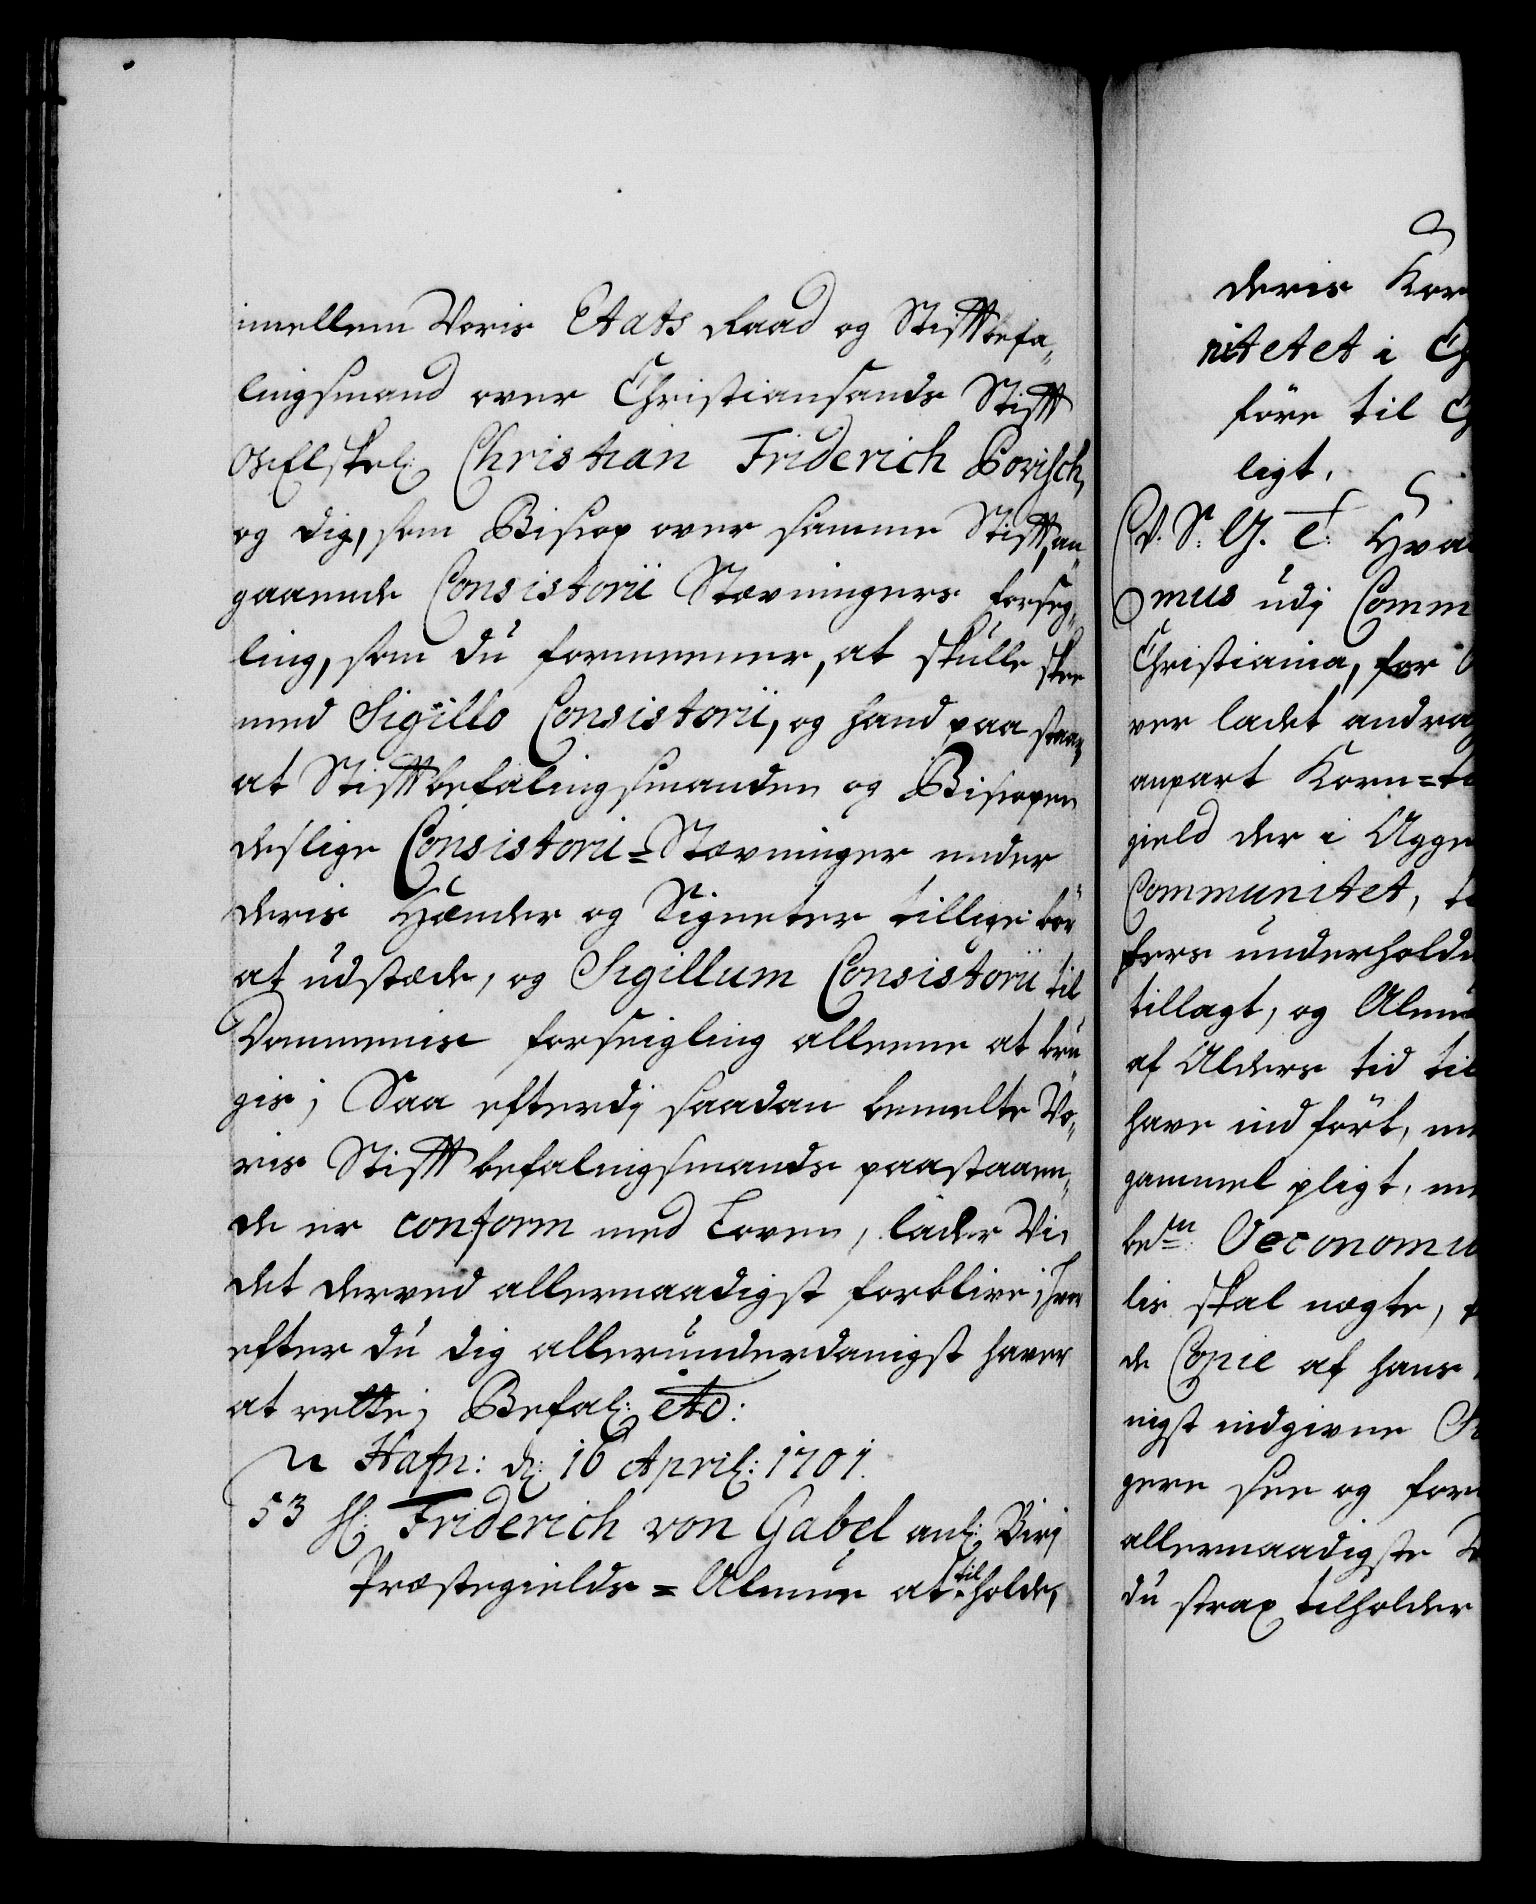 imellem Voris Etats Raad og Stifftbefa„
lingsmand over Christiansands Stifft
OsElskel: Christian Friderich Povisch,
og dig, som Bisiop over samme Stifft, an„
gaaende Consistorii Stævningers forseg„
ling, som du formeener, at skulle skee
med Sigillo Consistorii, og hand paa staar,
at Stifftbefalingsmanden og Bisiopen
deslige Consistorii=Stævninger under
deris Hænder og Signeter tillige bør
at udstæde, og Sigillum Consistorii til
Dommenis forseigling alleene at bru„
gis; Saa efterdj saadan bemelte Vo„
ris Stifft befalingsmands paastaaen„
de er conform med Loven, lader Vi
det derved allernaadigst forblive; hvor
efter du dig allerunderdanigst haver
at rette; Befal: etc:
Hafn: d: 16 April: 1701.
53 H: Friderich von Gabel anl: Birj
Præstegields=Almue at til holde,
deris Kor
nitetet i Ch
føre til Ch
ligt.
C5. S: G. t: Hva
mus udj Comm
Christiania, for
ver ladet andra
anpart Korn=ti
gield der i Agge
Communitet,
fers underhold
tillagt, og Almu
af Alders tid til
have ind ført,
gammel pligt,
bem: Oeconomu
lis skal nægte,
de Copie af hans
nigst indgivne
gere see og for
allernaadigste
du strax tilholder